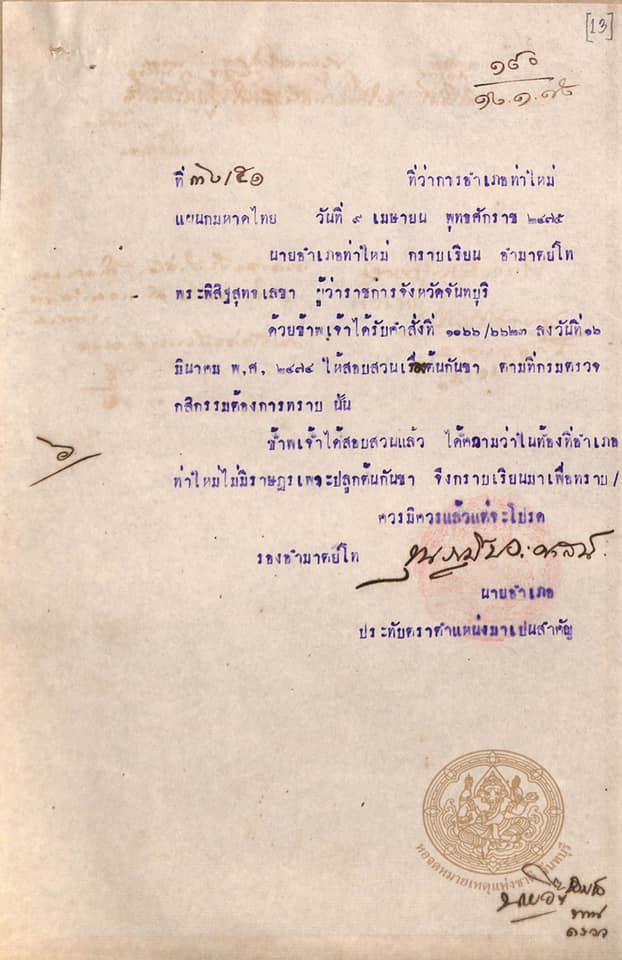 [13]
๑๘๐
๑๒.๑.๗๕
ที่ ๓๖/๕๑ ที่ว่าการอำเภอท่าใหม่
แผนกมหาดไทย วันที่ ๙ เมษายน พุทธศักราช ๒๔๗๕
นายอำเภอท่าใหม่ กราบเรียน อำมาตย์โท
พระพิสิฐสุทธเลขา ผู้ว่าราชการจังหวัดจันทบุริ
ด้วยข้าพเจ้าได้รับคำสั่งที่ ๑๑๖๖/๒๖๒๓ ลงวันที่ ๑๖
มินาคม พ,ศ, ๒๔๗๔ ให้สอบสวนเรื่องต้นกันชา ตามที่กรมตรวจ
กสิกรรมต้องการทราบ นั้น
ข้าพเจ้าได้สอบสวนแล้ว ได้ความว่าในท้องที่อำเภอ
ท่าใหม่ไม่มิราษฎรเพาะปลูกต้นกันชา จึงกราบเรียนมาเพื่อทราบ/
ควรมิควรแล้วแต่จะโปรด
รองอำมาตย์โท
นายอำเภอ
ประทับตราตำแหน่งมาเปนสำคัญ
หอจดหมายเหตุแห่งชาติ จันทบุรี